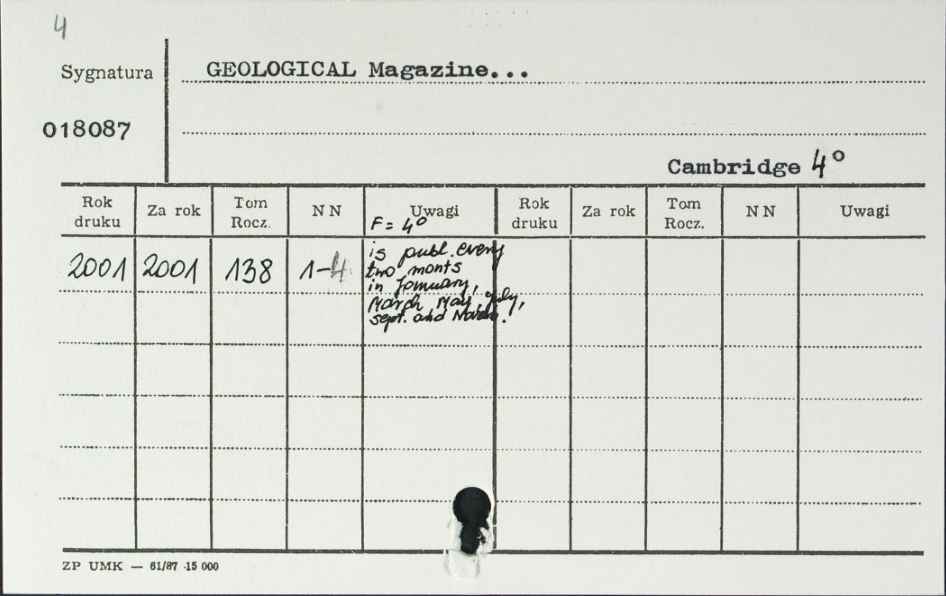 4
Sygnatura
GEOLOGICAL Magazine...
018087
Cambridge 4°
Rok druku Za rok Tom Rocz. N N Uwagi Rok druku Za rok Tom Rocz. N N Uwagi
F = 4°
2001 2001 138 1-4 is publ. every
two monts
in January,
March May, July,
sept. and Novem.
ZP UMK — 61/87 ·15 000